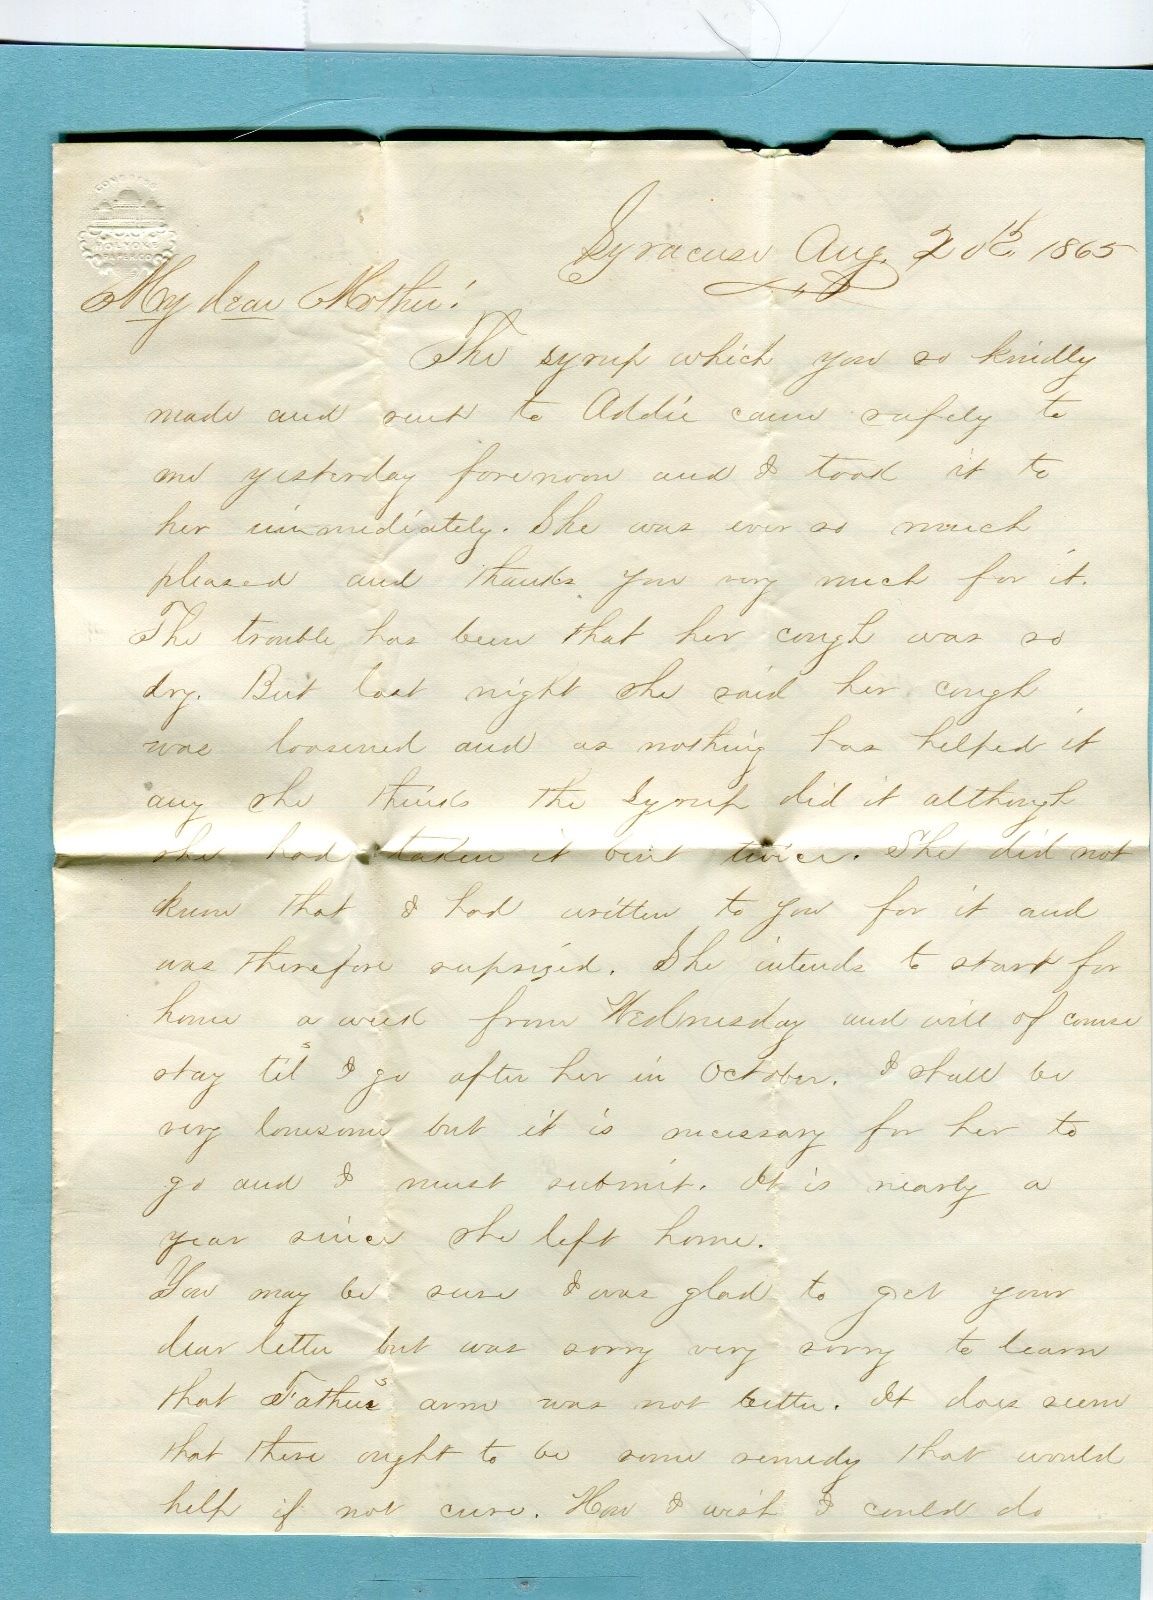 CONGRESS
HOLYOKE
PAPER CO
Syracuse Aug. 20th. 1865
My dear Mother!
The syrup which you so kindly
made and sent to Addie came safely to
me yesterday forenoon and I took it to
her immediately. She was ever so much
pleased and thanks you very much for it.
The trouble has been that her cough was so
dry. But last night she said her cough
was loosened and as nothing has helped it
any she thinks the syrup did it although
she had taken it but twice. She did not
know that I had written to you for it and
was therefore suprised. She intends to start for
home a week from Wednesday and will of course
stay til I go after her in October. I shall be
very lonesome but it is necessary for her to
go and I must submit. It is nearly a
year since she left home.
You may be sure I was glad to get your
dear letter but was sorry very sorry to learn
that Father's arm was not better. It does seem
that there ought to be some remedy that would
help if not cure. How I wish I could do